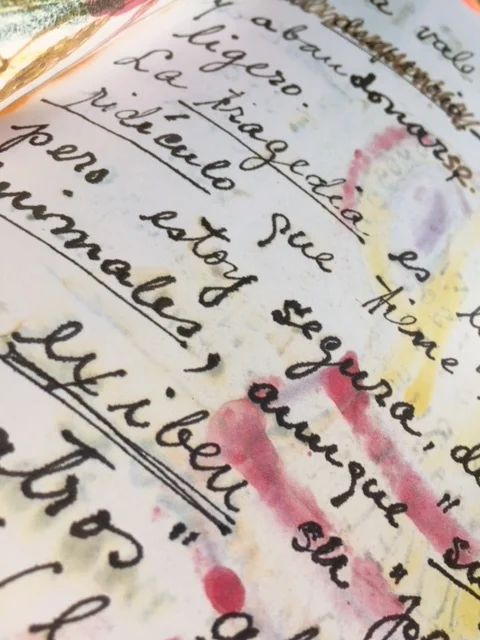 vale
Y abandonarse.
ligero.
La tragedia es
ridículo que tiene
pero estoy segura, de
nimales, aunque "su
exiben su "p
atros" a
(l